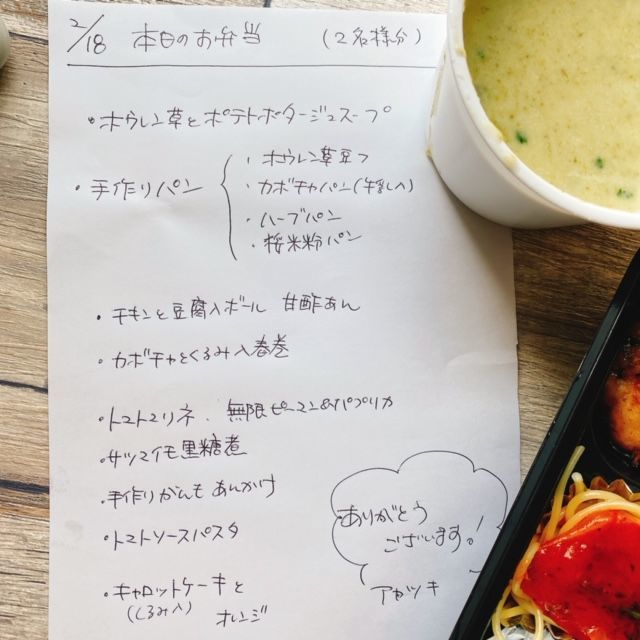 2/18 本日のお弁当 (2名様分)
・ホウレン草とポテトポタージュスープ
・手作りパン
・ホウレン草豆フ
・カボチャパン(牛乳入)
・ハーブパン
・桜米粉パン
・チキンと豆腐入ボール 甘酢あん
・カボチャとくるみ入春巻
・トマトマリネ. 無限ピーマン&パプリカ
・サツマイモ黒糖煮
・手作りがんも あんかけ
・トマトソースパスタ
・キャロットケーキと
(くるみ入) オレンジ
ありがとう
ございます。!
アカツキ